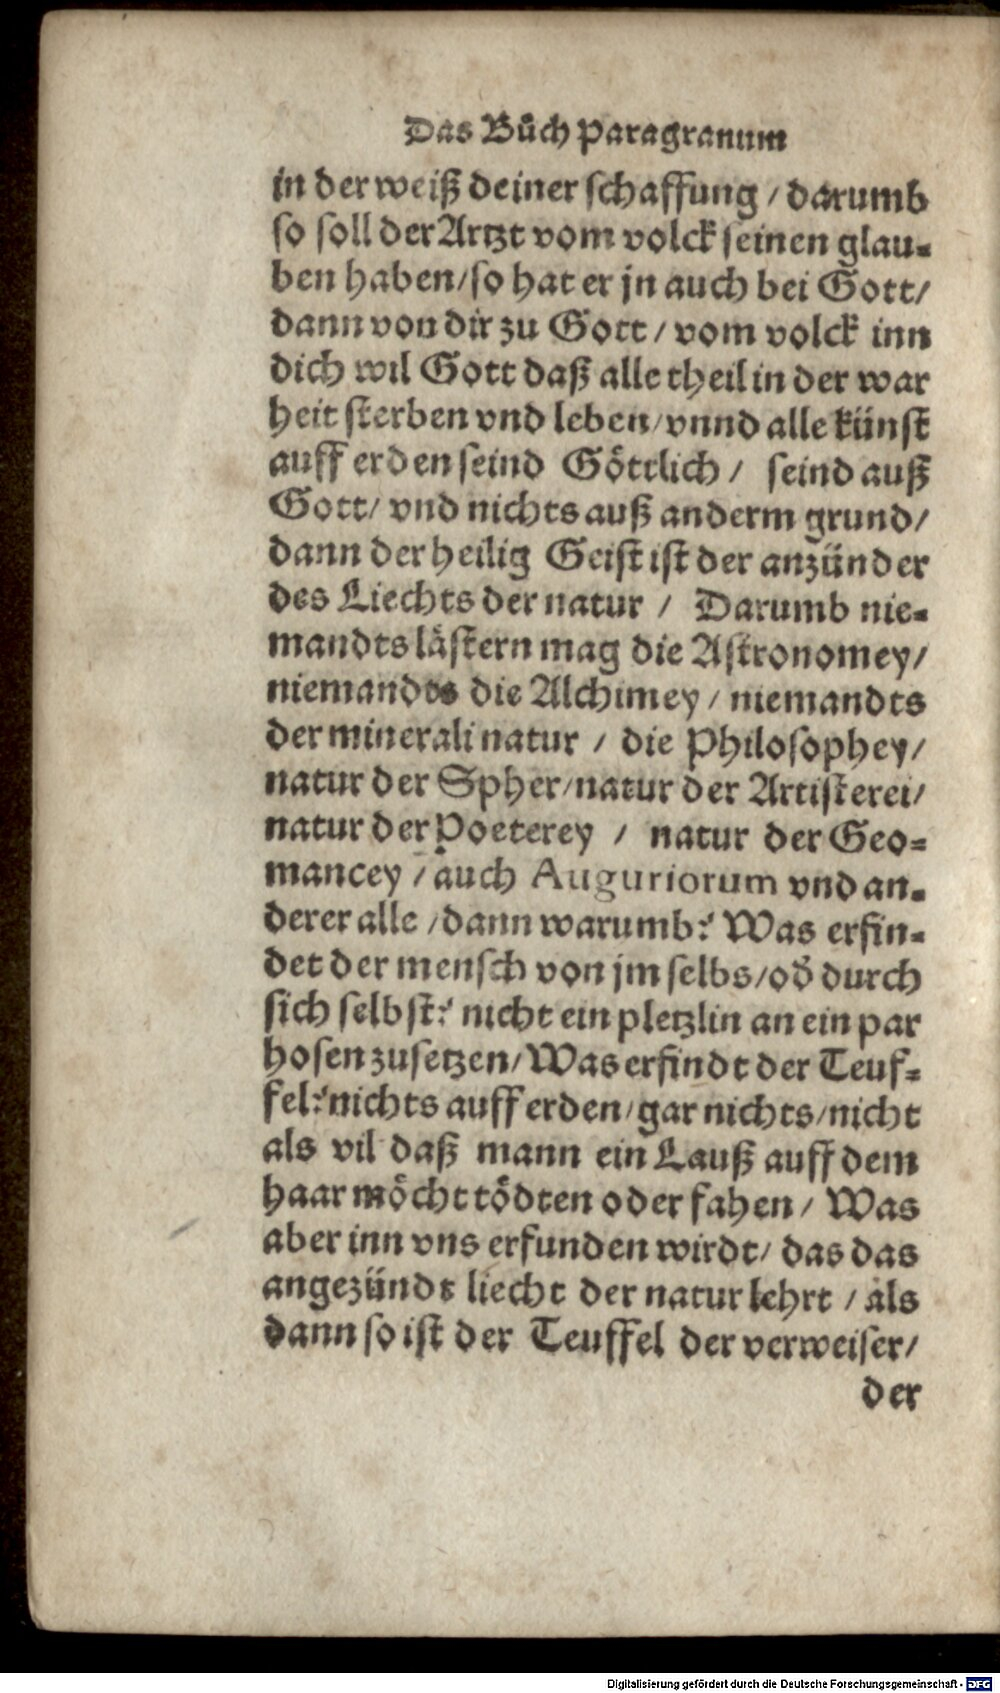 Das Bůch Paragranum
in der weiß deiner schaffung / darumb
so soll der Artzt vom volck seinen glau-
ben haben / so hat er jn auch bei Gott /
dann von dir zu Gott / vom volck inn
dich wil Gott daß alle theil in der war
heit sterben vnd leben / vnnd alle künst
auff erden seind Göttlich / seind auß
Gott / vnd nichts auß anderm grund /
dann der heilig Geist ist der anzünder
des Liechts der natur / Darumb nie-
mandts lästern mag die Astronomey /
niemandts die Alchimey / niemandts
der minerali natur / die Philosophey /
natur der Spher / natur der Artisterei /
natur der Poeterey / natur der Geo-
mancey / auch Auguriorum vnd an-
derer alle / dann warumb? Was erfin-
det der mensch von jm selbs / od̃ durch
sich selbst? nicht ein pletzlin an ein par
hosen zusetzen / Was erfindt der Teuf-
fel? nichts auff erden / gar nichts / nicht
als vil daß mann ein Lauß auff dem
haar möcht tödten oder fahen / Was
aber inn vns erfunden wirdt / das das
angezündt liecht der natur lehrt / als
dann so ist der Teuffel der verweiser /
der
Digitalisierung gefördert durch die Deutsche Forschungsgemeinschaft - DFG